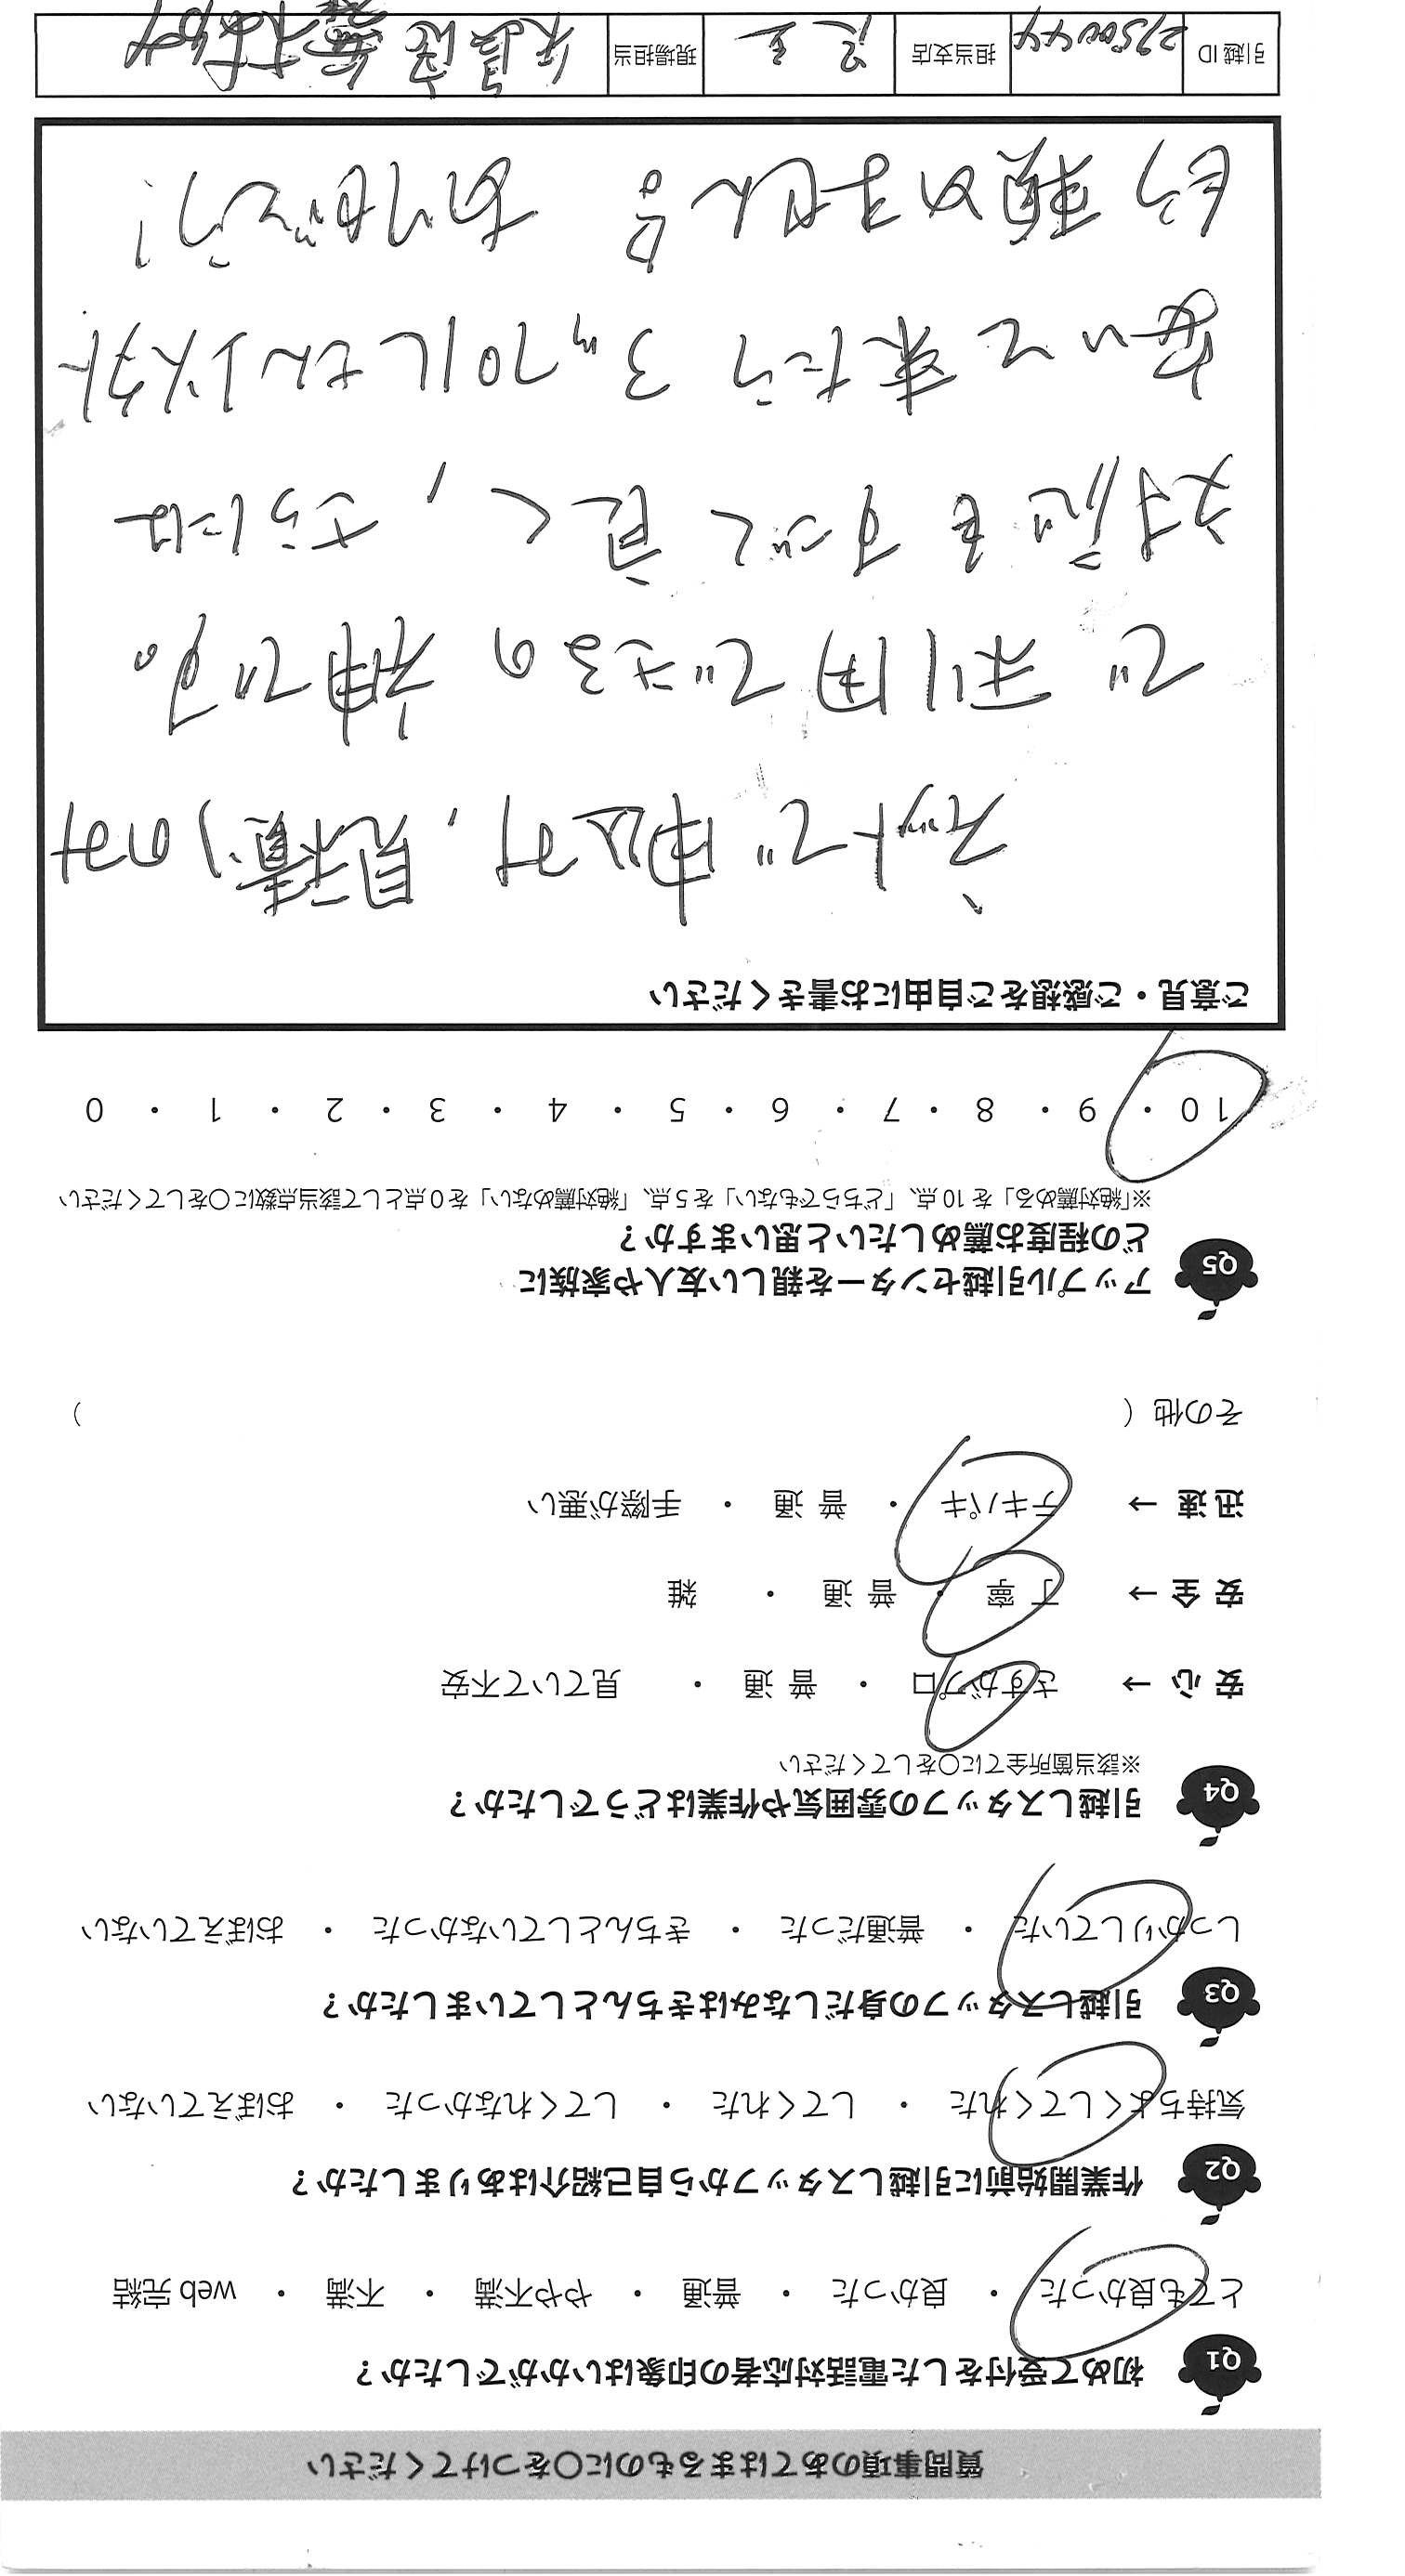 質問事項のあてはまるものに○をつけてください
Q1 初めて受付をした電話対応者の印象はいかがでしたか？
とても良かった ・ 良かった ・ 普通 ・ やや不満 ・ 不満 ・ web 完結
Q2 作業開始前に引越しスタッフから自己紹介はありましたか？
気持ちよくしてくれた ・ してくれた ・ してくれなかった ・ おぼえていない
Q3 引越しスタッフの身だしなみはきちんとしていましたか？
しっかりしていた ・ 普通だった ・ きちんとしていなかった ・ おぼえていない
Q4 引越しスタッフの雰囲気や作業はどうでしたか？
※該当箇所全てに○をしてください
安 心 → さすがプロ ・ 普 通 ・ 見ていて不安
安 全 → 丁 寧 ・ 普 通 ・ 雑
迅 速 → テキパキ ・ 普 通 ・ 手際が悪い
その他（ ）
Q5 アップル引越センターを親しい友人や家族に
どの程度お薦めしたいと思いますか？
※「絶対薦める」を 10 点、「どちらでもない」を 5 点、「絶対薦めない」を 0 点として該当点数に○をしてください
10 ・ 9 ・ 8 ・ 7 ・ 6 ・ 5 ・ 4 ・ 3 ・ 2 ・ 1 ・ 0
ご意見・ご感想をご自由にお書きください
ネットで申込み，見積りのみ
で利用できるの神です。
対応もすごく良く，さらには
働いて来たら3アップルさん以外
もう頼めません。ありがとう!
引越 ID 担当支店 現場担当